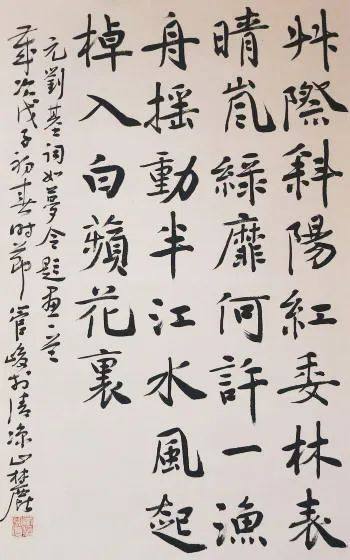 艸際斜陽紅委林表
晴嵐綠靡何許一漁
舟摇動半江水風起
棹入白蘋花裏
元劉基詞如夢令題畫
歲次戊子初春时節管峻於清涼山麓